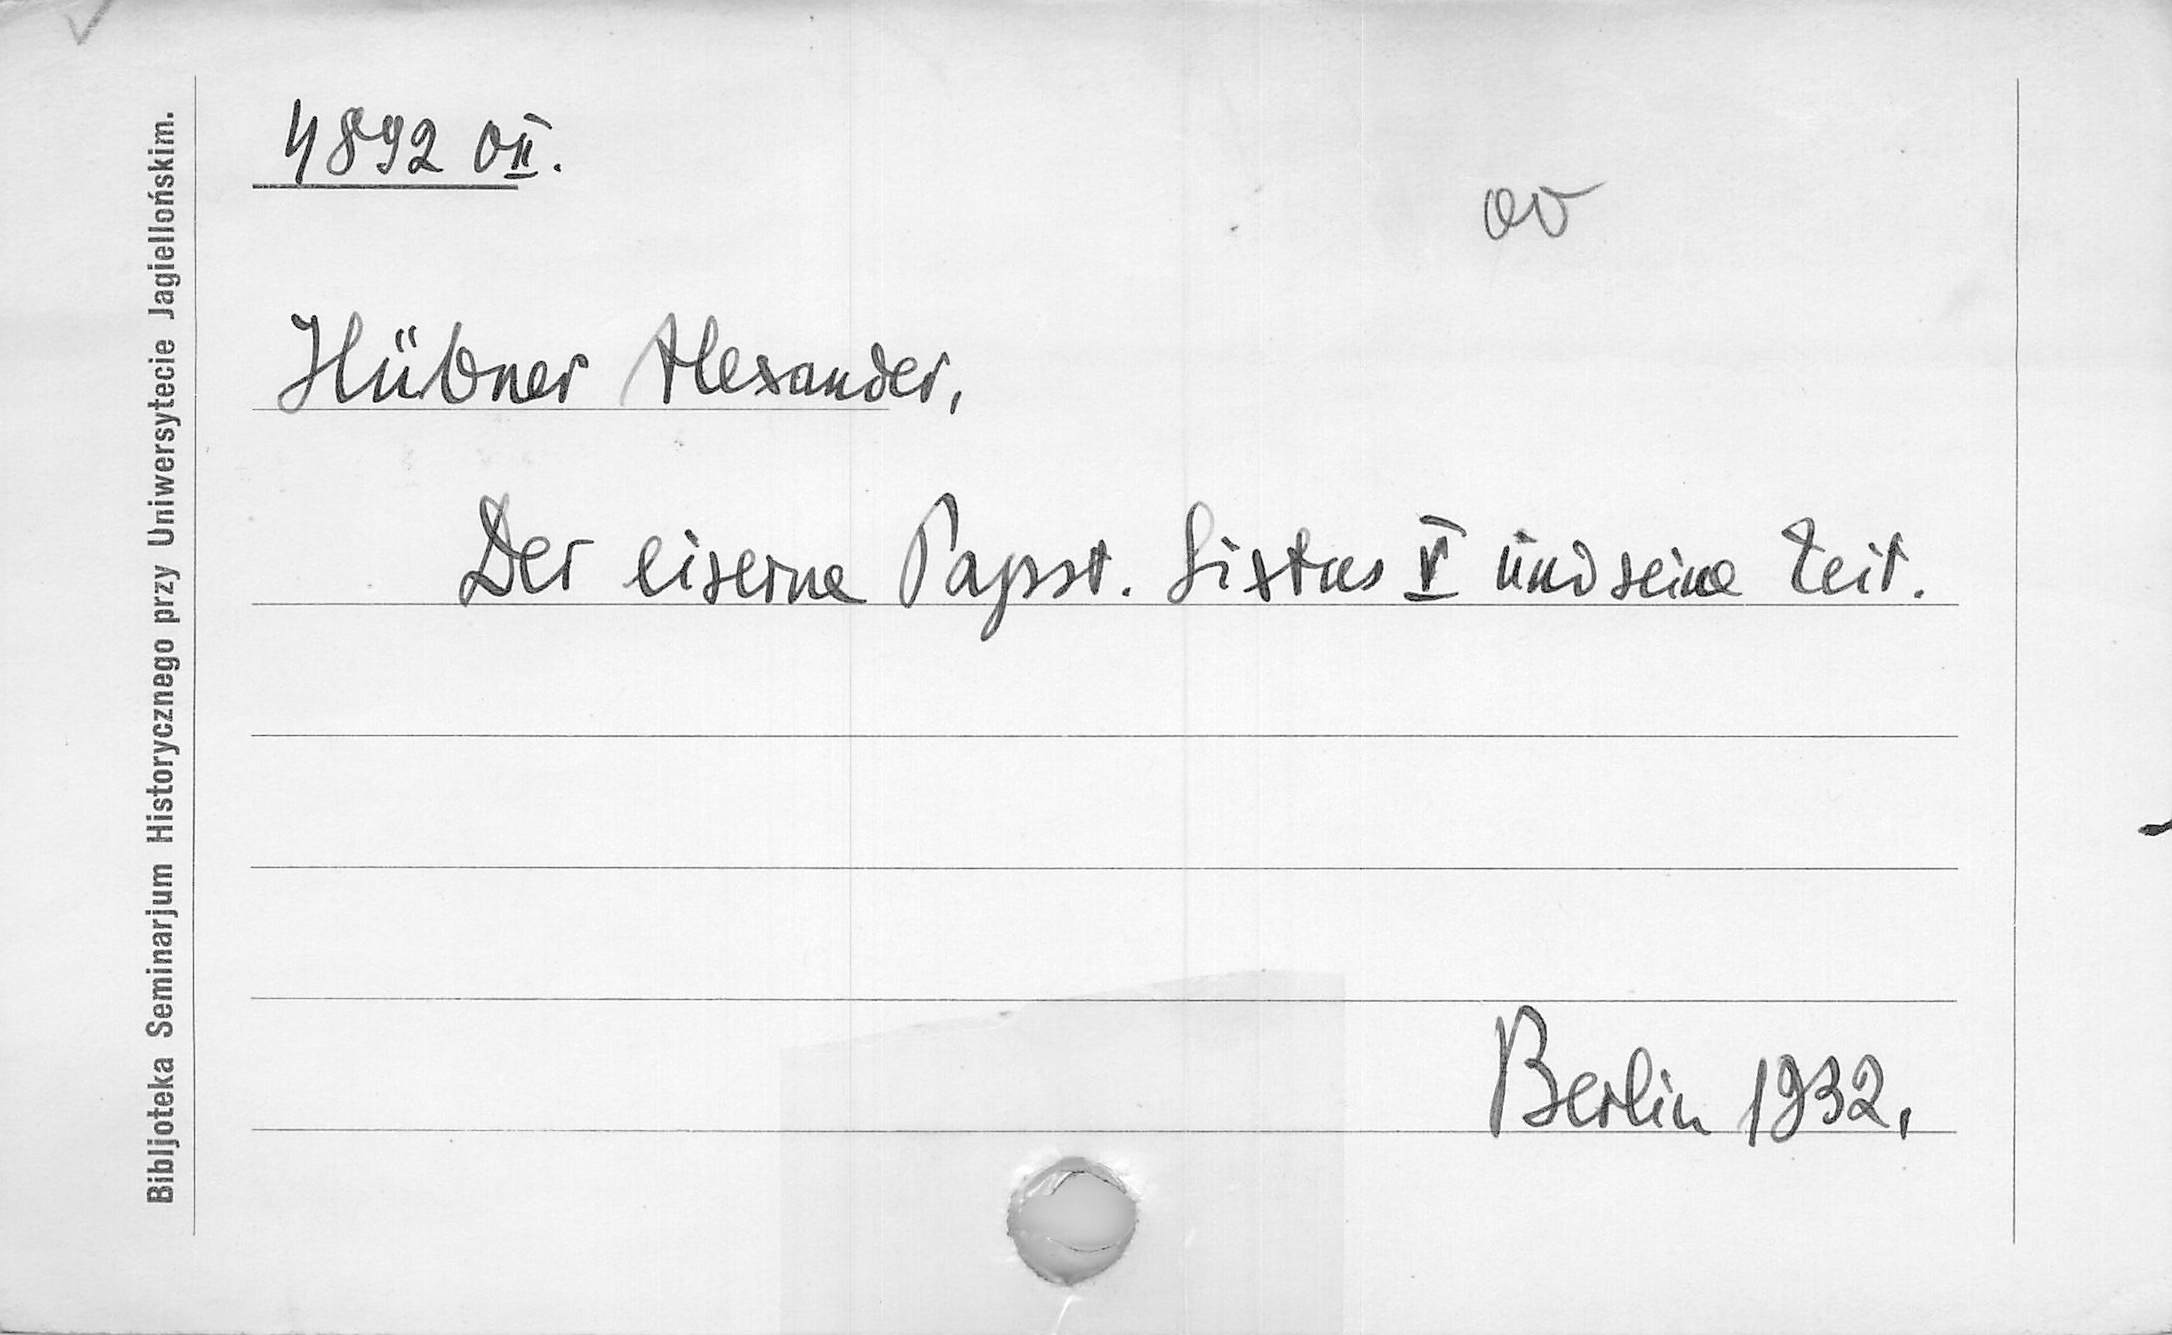 4892 OII.
ov
Hübner Alexander,
Der eiserne Papst. Sixtus V und seine Zeit.
Berlin 1932.
Bibljoteka Seminarjum Historycznego przy Uniwersytecie Jagiellońskim.